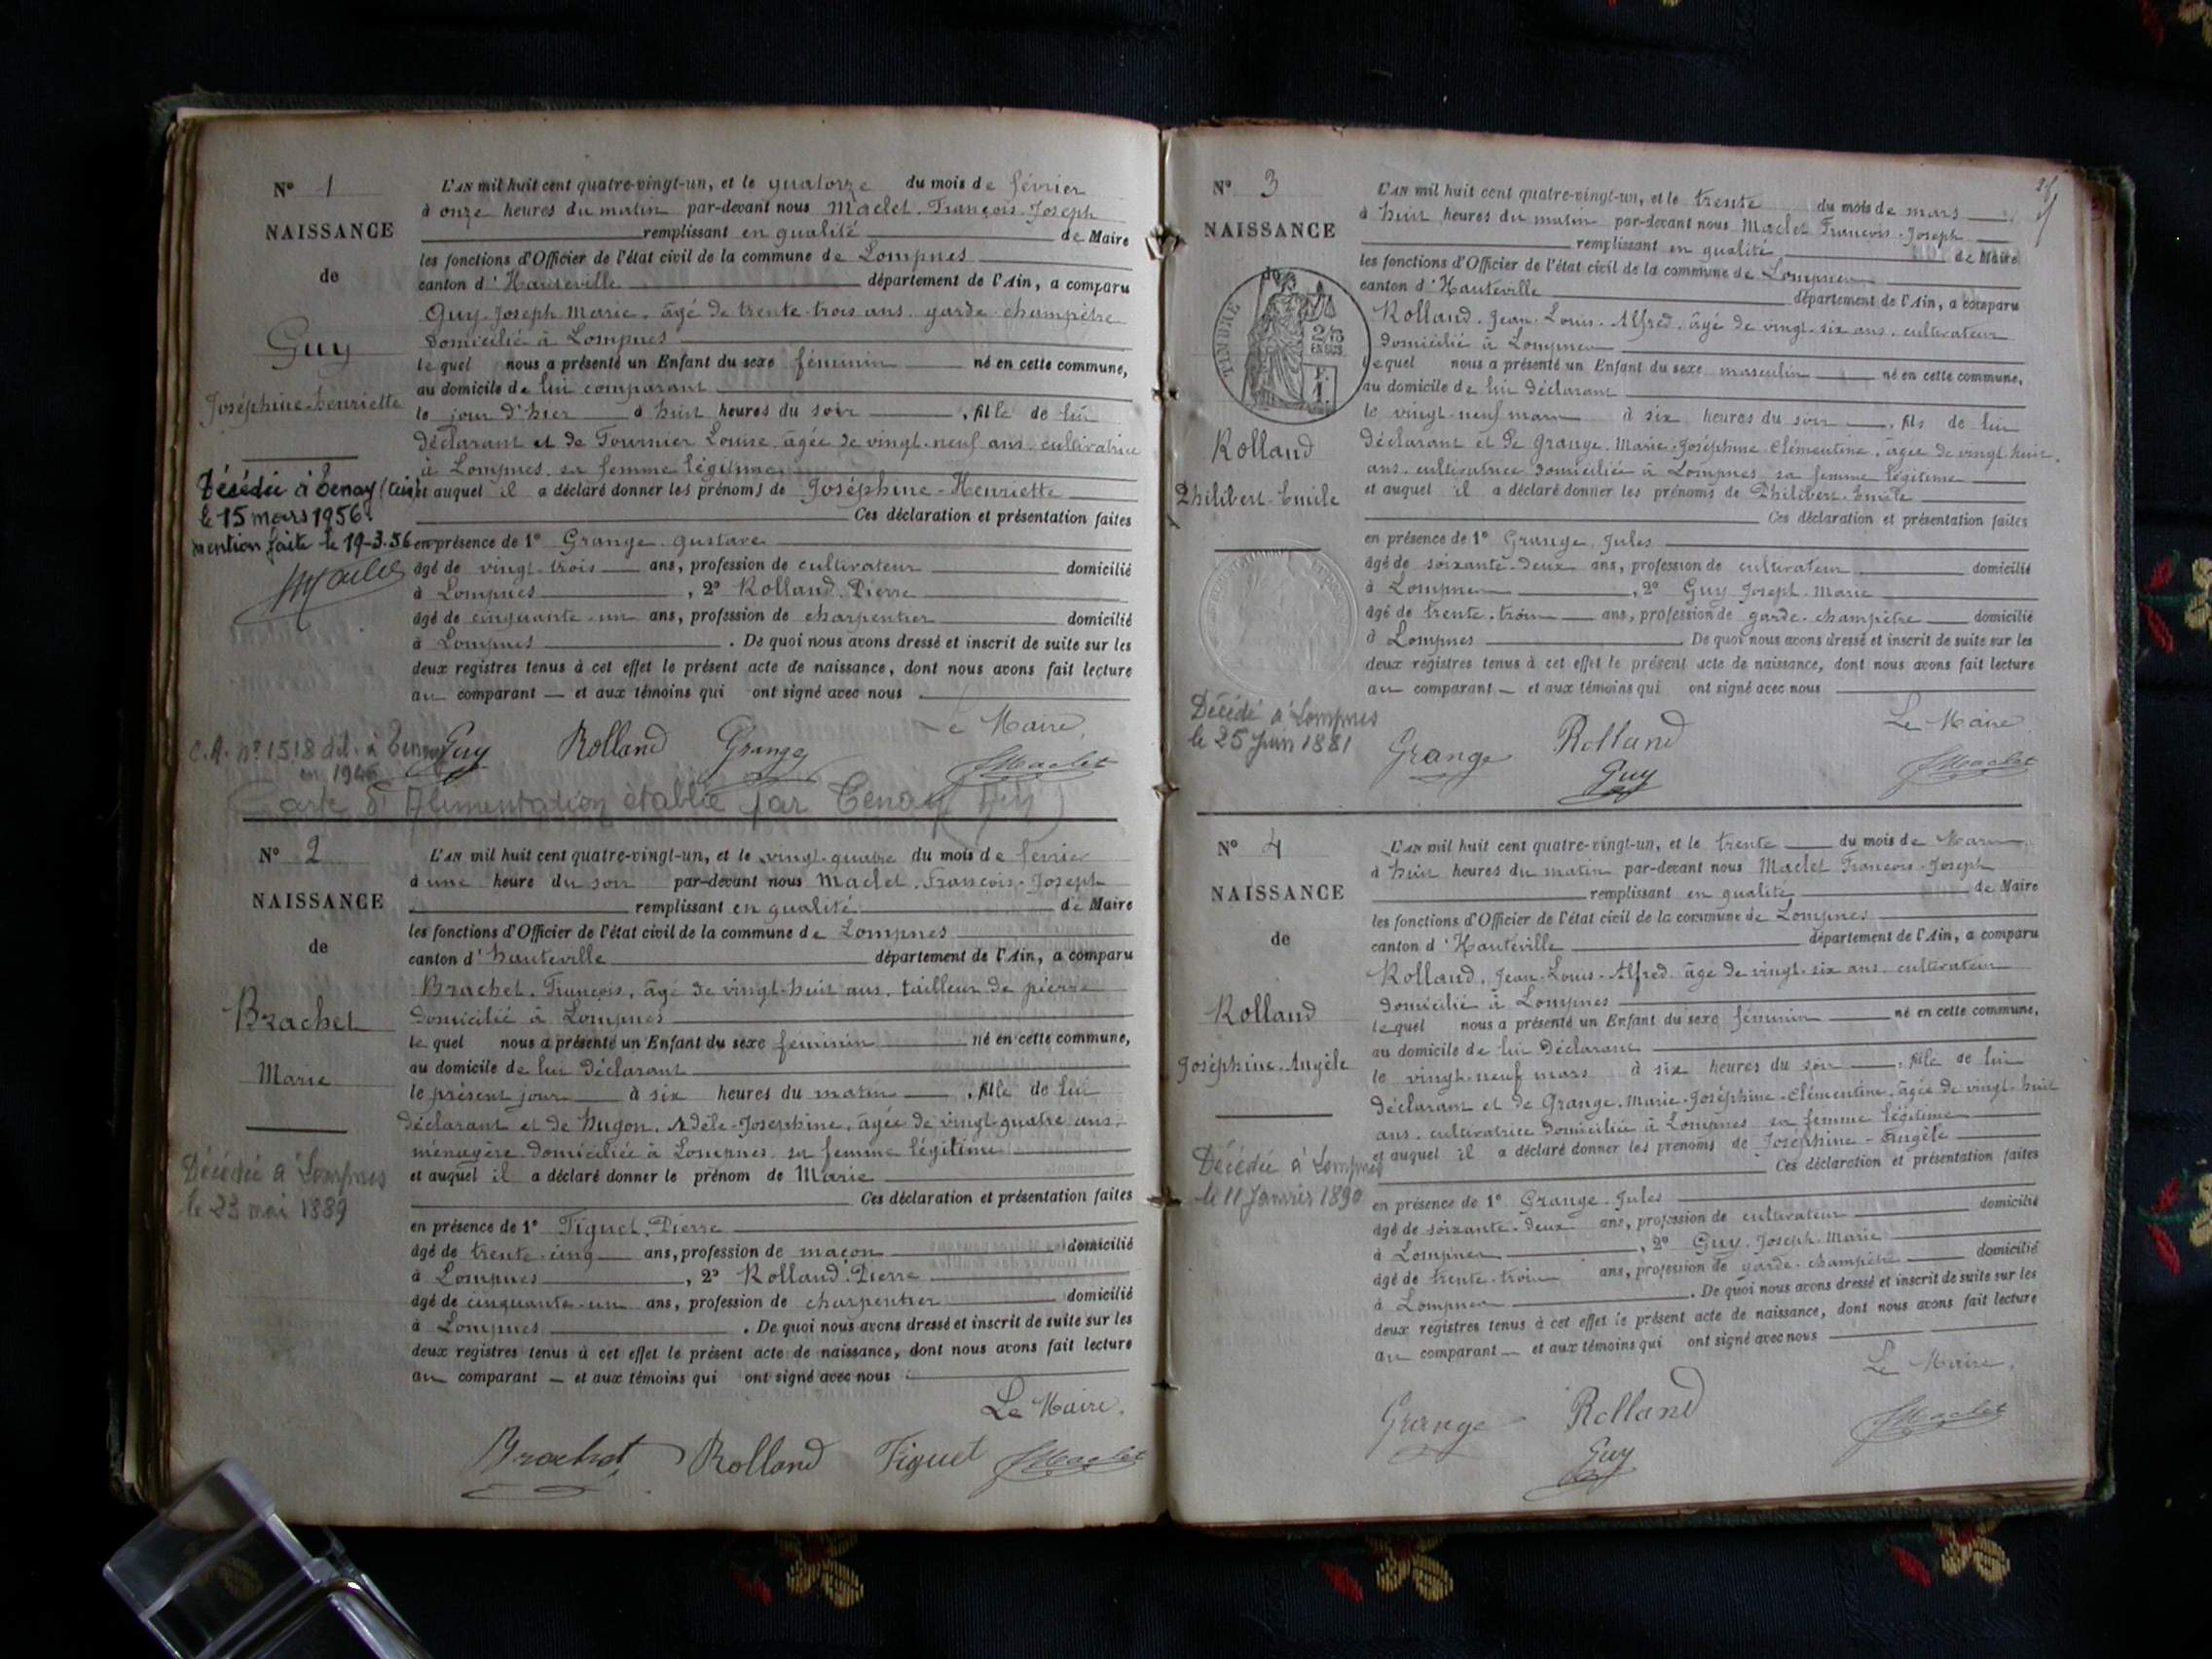 N° 1
NAISSANCE
de
Guy
Joséphine-henriette
Décédée à Tenay (Ain)
le 15 mars 1956.
mention faite le 19-3.56
L'AN mil huit cent quatre-vingt-un, et le quatorze du mois de février
à onze heures du matin par-devant nous Maclet. François. Joseph
remplissant en qualité de Maire
les fonctions d'Officier de l'état civil de la commune de Lompnes
canton d'Hauteville département de l'Ain, a comparu
Guy. Joseph. Marie. âgé de trente-trois ans. garde-champêtre
domicilié à Lompnes
lequel nous a présenté un Enfant du sexe féminin né en cette commune,
au domicile de lui comparant
le jour d'hier à huit heures du soir, fille de lui
déclarant et de Tournier Louise, âgée de vingt-neuf ans cultivatrice
à Lompnes. sa femme légitime
et auquel il a déclaré donner les prénoms de Joséphine-Henriette
Ces déclaration et présentation faites
en présence de 1° Grange. Gustave
âgé de vingt-trois ans, profession de cultivateur domicilié
à Lompnes, 2° Rolland. Pierre
âgé de cinquante-un ans, profession de charpentier domicilié
à Lompnes. De quoi nous avons dressé et inscrit de suite sur les
deux registres tenus à cet effet le présent acte de naissance, dont nous avons fait lecture
au comparant — et aux témoins qui ont signé avec nous
Le Maire,
Guy Rolland Grange JMaclet
C.A. n° 1518 dél. à Tenay
en 1946
(Carte d'Alimentation établie par Tenay (Ain)
N° 2
NAISSANCE
de
Brachet
Marie
Décédée à Lompnes
le 23 mai 1889
L'AN mil huit cent quatre-vingt-un, et le vingt-quatre du mois de février
à une heure du soir par-devant nous Maclet. François. Joseph
remplissant en qualité de Maire
les fonctions d'Officier de l'état civil de la commune de Lompnes
canton d'hauteville département de l'Ain, a comparu
Brachet. François, âgé de vingt-huit ans. tailleur de pierre
domicilié à Lompnes
lequel nous a présenté un Enfant du sexe féminin né en cette commune,
au domicile de lui déclarant
le présent jour à six heures du matin, fille de lui
déclarant et de Hugon. Adèle-Joséphine, âgée de vingt quatre ans,
ménagère domiciliée à Lompnes. sa femme légitime
et auquel il a déclaré donner le prénom de Marie
Ces déclaration et présentation faites
en présence de 1° Figuet. Pierre
âgé de trente-cinq ans, profession de maçon domicilié
à Lompnes, 2° Rolland. Pierre
âgé de cinquante-un ans, profession de charpentier domicilié
à Lompnes. De quoi nous avons dressé et inscrit de suite sur les
deux registres tenus à cet effet le présent acte de naissance, dont nous avons fait lecture
au comparant — et aux témoins qui ont signé avec nous
Le Maire.
Brachet Rolland Figuet JMaclet
N° 3
NAISSANCE
de
TIMBRE
Rolland
Philibert-Emile
Décédé à Lompnes
le 25 Juin 1881
L'AN mil huit cent quatre-vingt-un, et le trente du mois de mars
à huit heures du matin par-devant nous Maclet François-Joseph
remplissant en qualité de Maire
les fonctions d'Officier de l'état civil de la commune de Lompnes
canton d'Hauteville département de l'Ain, a comparu
Rolland. Jean-Louis-Alfred. âgé de vingt-six ans. cultivateur
domicilié à Lompnes
lequel nous a présenté un Enfant du sexe masculin né en cette commune,
au domicile de lui déclarant
le vingt-neuf mars à six heures du soir, fils de lui
déclarant et de Grange. Marie-Joséphine-Clémentine, âgée de vingt-huit.
ans. cultivatrice domiciliée à Lompnes sa femme légitime
et auquel il a déclaré donner les prénoms de Philibert-Emile
Ces déclaration et présentation faites
en présence de 1° Grange. Jules
âgé de soixante-deux ans, profession de cultivateur domicilié
à Lompnes, 2° Guy Joseph-Marie
âgé de trente-trois ans, profession de garde-champêtre domicilié
à Lompnes. De quoi nous avons dressé et inscrit de suite sur les
deux registres tenus à cet effet le présent acte de naissance, dont nous avons fait lecture
au comparant — et aux témoins qui ont signé avec nous
Le Maire
Grange Rolland JMaclet
Guy
N° 4
NAISSANCE
de
Rolland
Joséphine-Angèle
Décédée à Lompnes
le 11 Janvier 1890
L'AN mil huit cent quatre-vingt-un, et le trente du mois de Mars
à huit heures du matin par-devant nous Maclet François-Joseph
remplissant en qualité de Maire
les fonctions d'Officier de l'état civil de la commune de Lompnes
canton d'Hauteville département de l'Ain, a comparu
Rolland. Jean-Louis-Alfred âgé de vingt-six ans cultivateur
domicilié à Lompnes
lequel nous a présenté un Enfant du sexe féminin né en cette commune,
au domicile de lui déclarant
le vingt-neuf mars à six heures du soir, fille de lui
déclarant et de Grange. Marie-Joséphine-Clémentine, âgée de vingt-huit
ans. cultivatrice domiciliée à Lompnes sa femme légitime
et auquel il a déclaré donner les prénoms de Joséphine-Angèle
Ces déclaration et présentation faites
en présence de 1° Grange. Jules
âgé de soixante-deux ans, profession de cultivateur domicilié
à Lompnes, 2° Guy. Joseph-Marie
âgé de trente-trois ans, profession de garde-champêtre domicilié
à Lompnes. De quoi nous avons dressé et inscrit de suite sur les
deux registres tenus à cet effet le présent acte de naissance, dont nous avons fait lecture
au comparant — et aux témoins qui ont signé avec nous
Le Maire,
Grange Rolland JMaclet
Guy